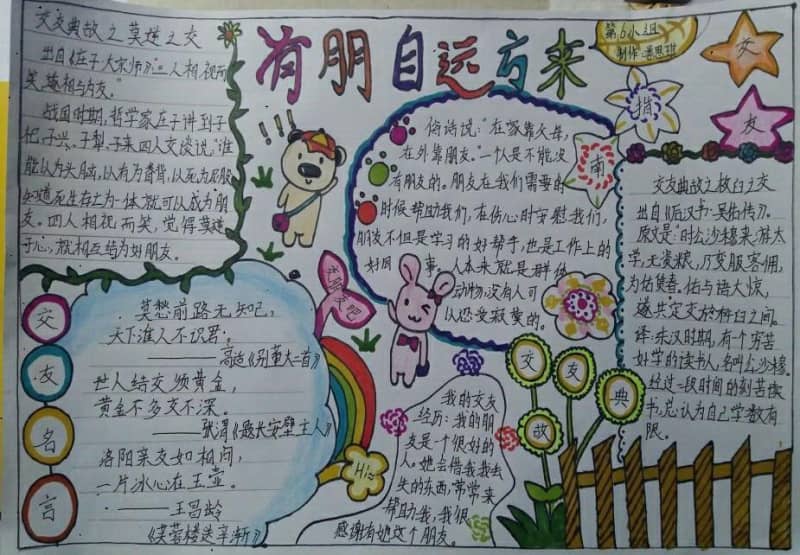 有朋自远方来
第6小组
制作:潘思琪
交
友
指
南
交友典故之莫逆之交
出自《庄子大宗师》:“三人相视而
笑,遂相与为友。”
战国时期,哲学家庄子讲到子
祀、子兴、子犁、子来四人交谈说,“谁
能认为头脑,以有为脊背,以死为尻股
知道死生存亡为一体,就可以成为朋
友。四人相视而笑,觉得莫逆
于心,就相互结为好朋友。
俗话说:“在家靠父母,
在外靠朋友。”一个人是不能没
有朋友的。朋友在我们需要的
时候帮助我们,在伤心时安慰我们,
朋友不但是学习的好帮手,也是工作上的
好同事,人本来就是群体
动物,没有人可
以忍受寂寞的。
交友典故之杵臼之交
出自《后汉书·吴佑传》。
原文是“时公沙穆来游太
学,无资粮,乃变服客佣,
为佑赁舂。佑与语大惊,
遂共定交于杵臼之间。
译:东汉时期,有个穷苦
好学的读书人,名叫公沙穆。
经过一段时间的刻苦读
书,总认为自己学数有
限。
交
友
名
言
莫愁前路无知己,
天下谁人不识君;
——高适《别董大二首》
世人结交须黄金,
黄金不多交不深。
——张渭《题长安壁主人》
洛阳亲友如相问,
一片冰心在玉壶。
——王昌龄
《芙蓉楼送辛渐》
交朋友吧
Hi~
我的交友
经历:我的朋
友是个很好的
人。她会借我我丢
失的东西,常常来
帮助我,我很
感谢有她这个朋友。
交
友
典
故